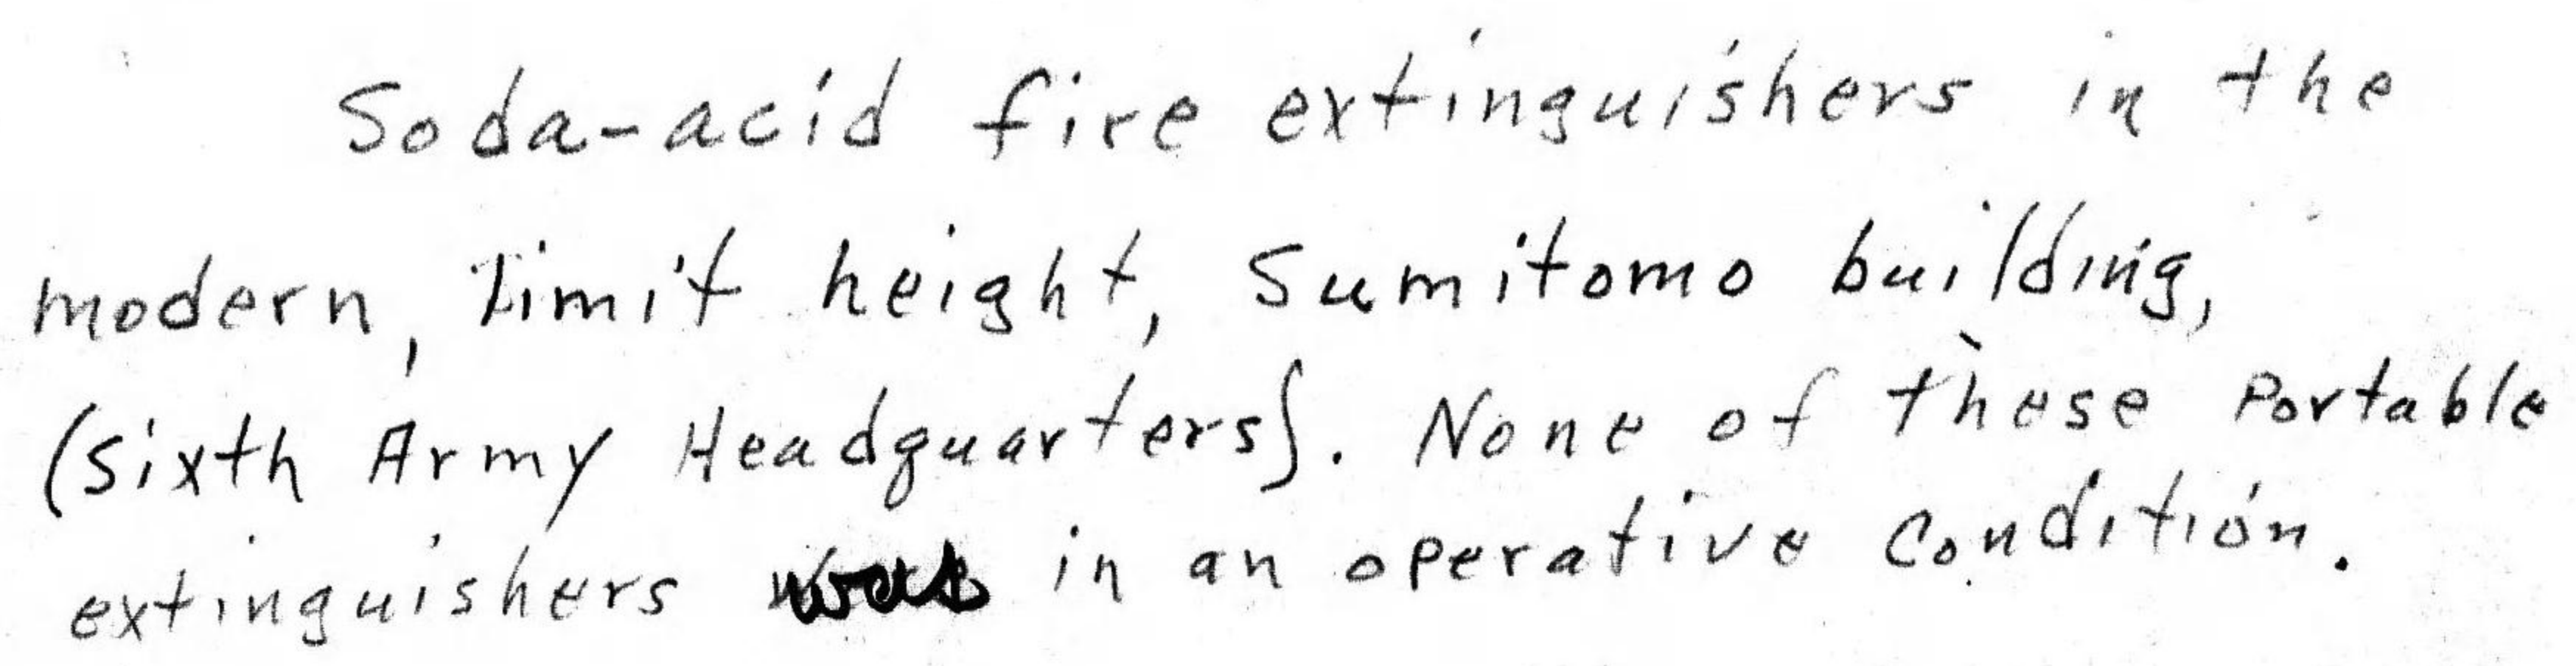 Soda-acid fire extinguishers in the
modern, limit height, Sumitomo building,
(Sixth Army Headquarters). None of these Portable
extinguishers was in an operative condition.